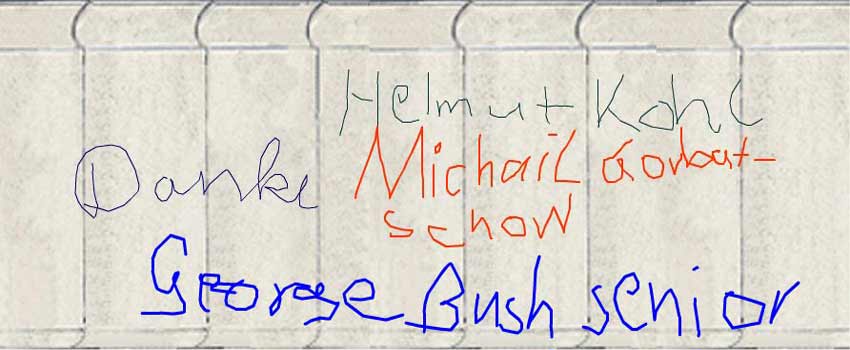 Helmut Kohl
Danke Michail Gorbat-
schow
George Bush senior